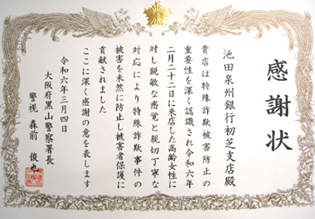 感謝状
池田泉州銀行初芝支店殿
貴店は特殊詐欺被害防止の
重要性を深く認識され令和六年
二月二十二日に来店した高齢女性に
対し鋭敏な感覚と親切丁寧な
対応により特殊詐欺事件の
被害を未然に防止し被害者保護に
貢献されました
ここに深く感謝の意を表します
令和六年三月四日
大阪府黒山警察署長
警視 森前 俊也